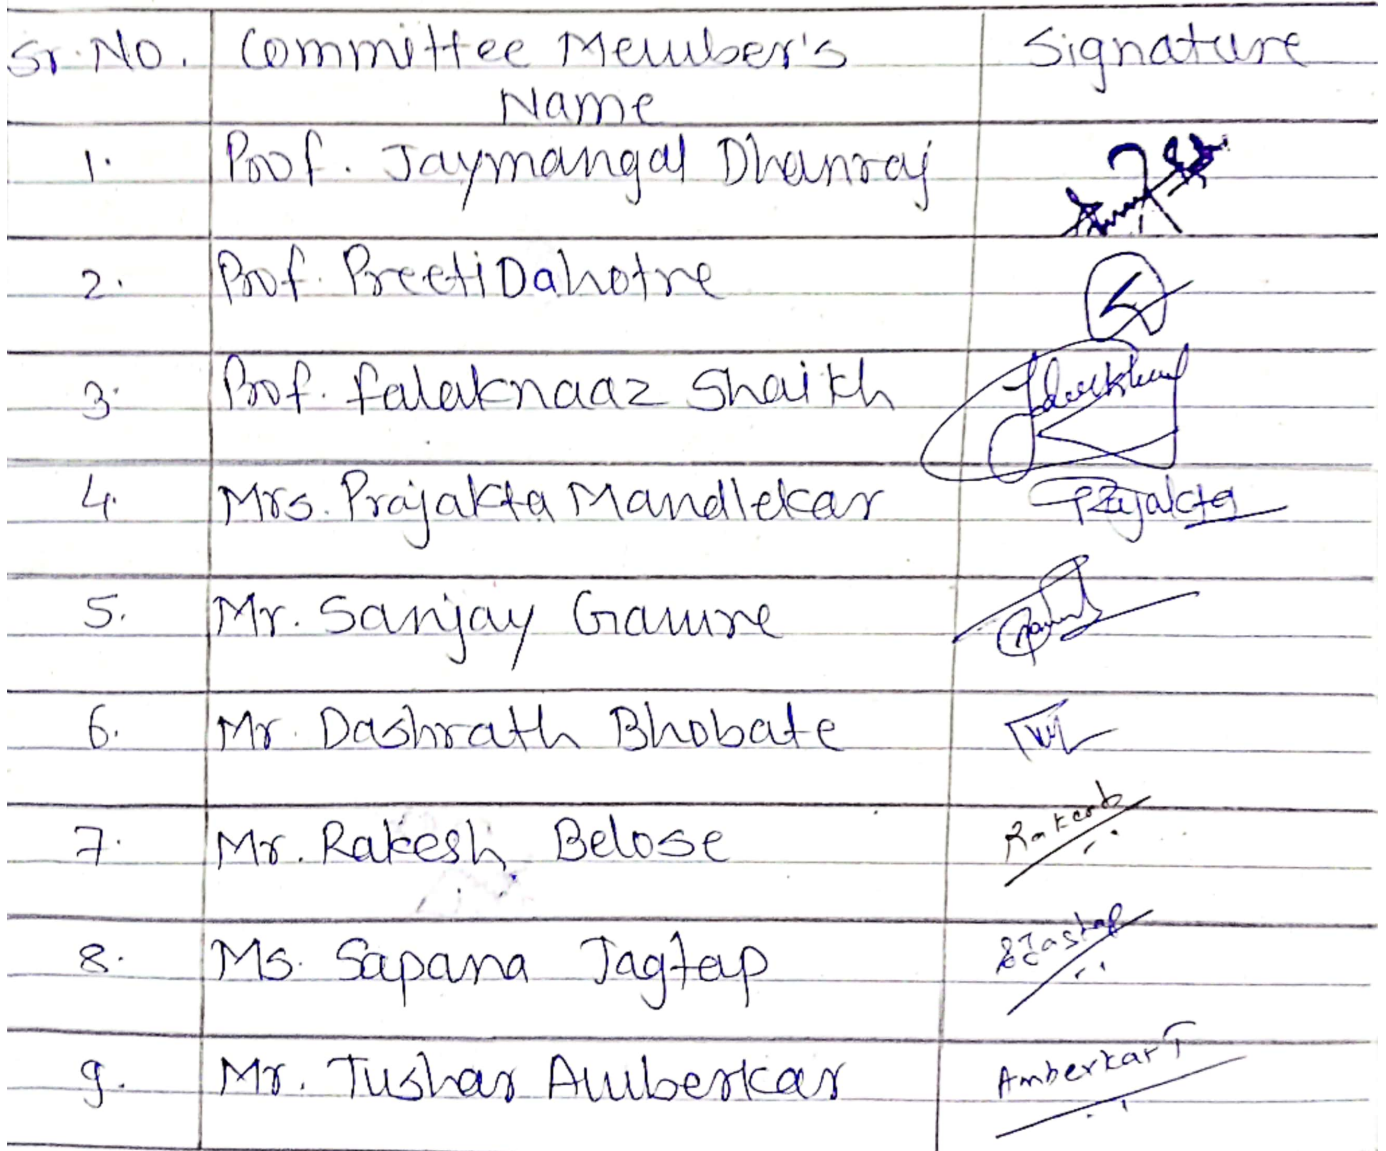 Sr. No. Committee Member's Name Signature
1. Prof. Jaymangal Dhanraj
2. Prof. Preeti Dahotre
3. Prof. falaknaaz Shaikh
4. Mrs. Prajakta Mandlekar Prajakta
5. Mr. Sanjay Gamre
6. Mr. Dashrath Bhobate
7. Mr. Rakesh Belose Rakesh
8. Ms. Sapana Jagtap SJagtap
9. Mr. Tushar Amberkar Amberkar T